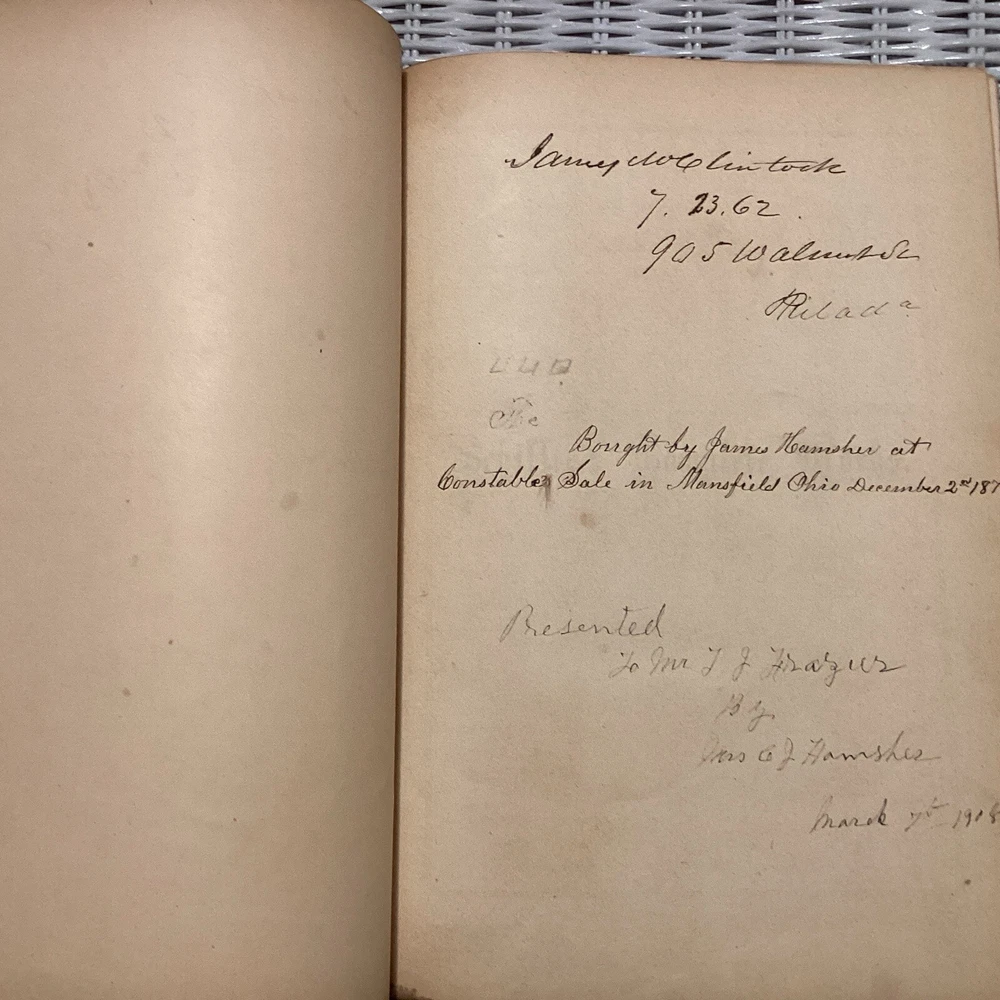 James McClintock
7. 23. 62.
905 Walnut St
Philada
The
Bought by James Hamsher at
Constables Sale in Mansfield Ohio December 2nd 187
Presented
To Mr T J Frazier
By
Mrs C J Hamsher
March 7th 1908